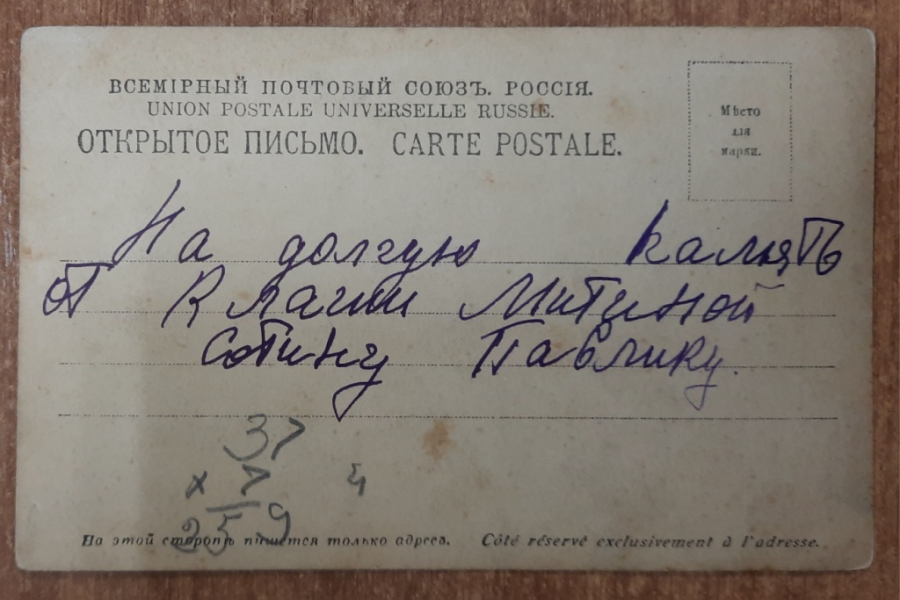 ВСЕМІРНЫЙ ПОЧТОВЫЙ СОЮЗЪ. РОССІЯ.
UNION POSTALE UNIVERSELLE RUSSIE.
ОТКРЫТОЕ ПИСЬМО. CARTE POSTALE.
Мѣсто
для
марки.
На долгую память
от Клавы Митиной
Сотину Павлику.
37
x 7
4
259
На этой сторонѣ пишется только адресъ. Côté réservé exclusivement à l'adresse.